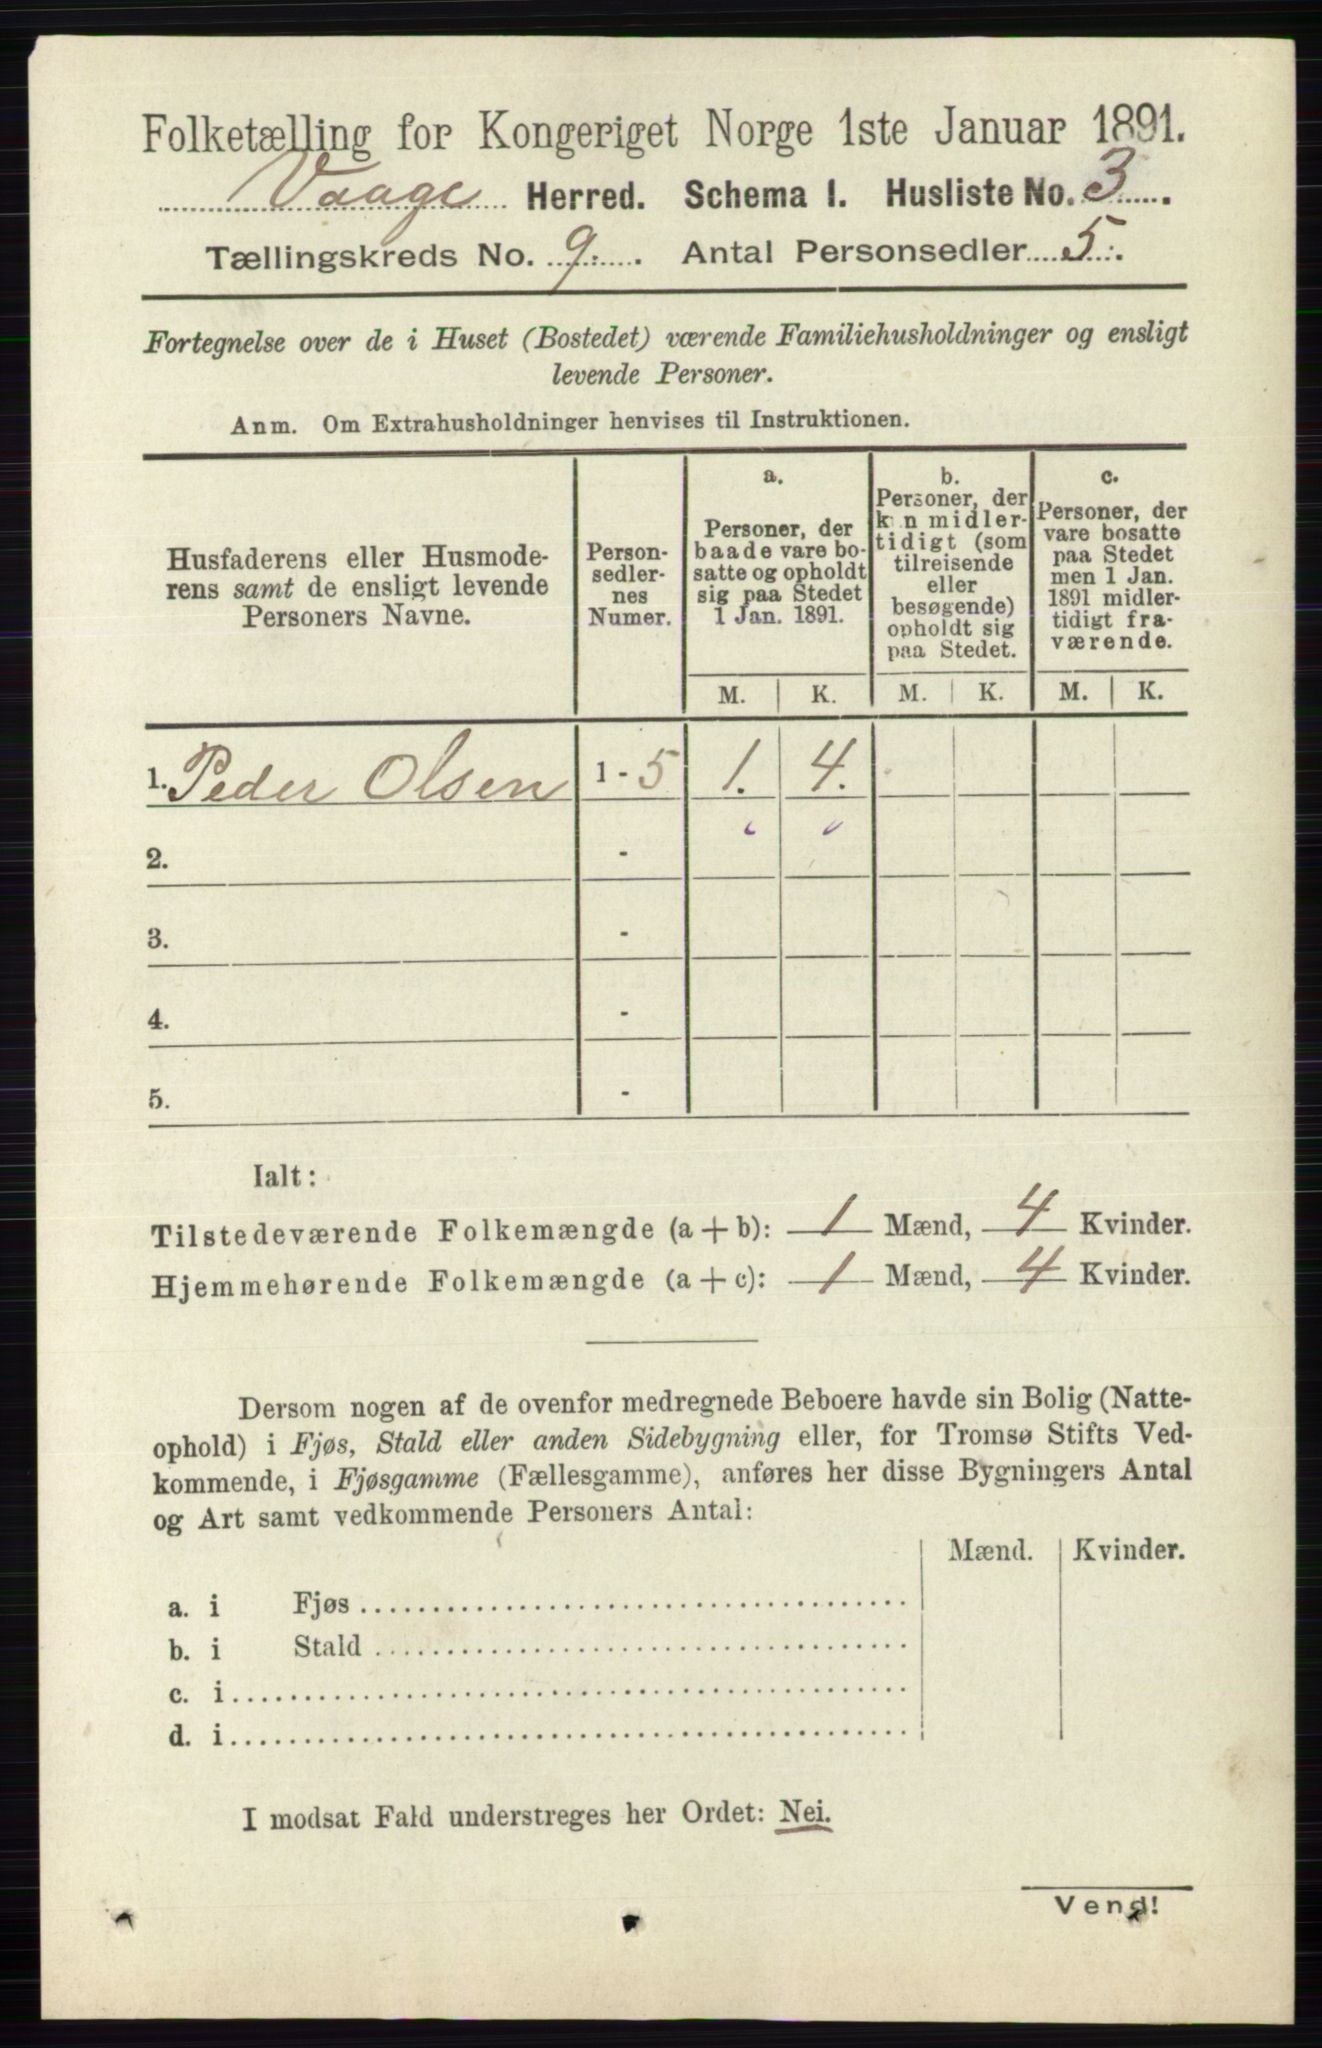 Folketælling for Kongeriget Norge 1ste Januar 1891.
Vaage Herred. Schema I. Husliste No. 3.
Tællingskreds No. 9. Antal Personsedler 5.
Fortegnelse over de i Huset (Bostedet) værende Familiehusholdninger og ensligt
levende Personer.
Anm. Om Extrahusholdninger henvises til Instruktionen.
Husfaderens eller Husmode-
rens samt de ensligt levende
Personers Navne.
Person-
sedler-
nes
Numer.
a.
Personer, der
baade vare bo-
satte og opholdt
sig paa Stedet
1 Jan. 1891.
b.
Personer, der
kun midler-
tidigt (som
tilreisende
eller
besøgende)
opholdt sig
paa Stedet.
c.
Personer, der
vare bosatte
paa Stedet
men 1 Jan.
1891 midler-
tidigt fra-
værende.
M. K. M. K. M. K.
1. Peder Olsen 1 - 5 1. 4.
2. -
3. -
4. -
5. -
Ialt:
Tilstedeværende Folkemængde (a + b): 1 Mænd, 4 Kvinder.
Hjemmehørende Folkemængde (a + c): 1 Mænd, 4 Kvinder.
Dersom nogen af de ovenfor medregnede Beboere havde sin Bolig (Natte-
ophold) i Fjøs, Stald eller anden Sidebygning eller, for Tromsø Stifts Ved-
kommende, i Fjøsgamme (Fællesgamme), anføres her disse Bygningers Antal
og Art samt vedkommende Personers Antal:
Mænd. Kvinder.
a. i Fjøs
b. i Stald
c. i
d. i
I modsat Fald understreges her Ordet: Nei.
Vend!